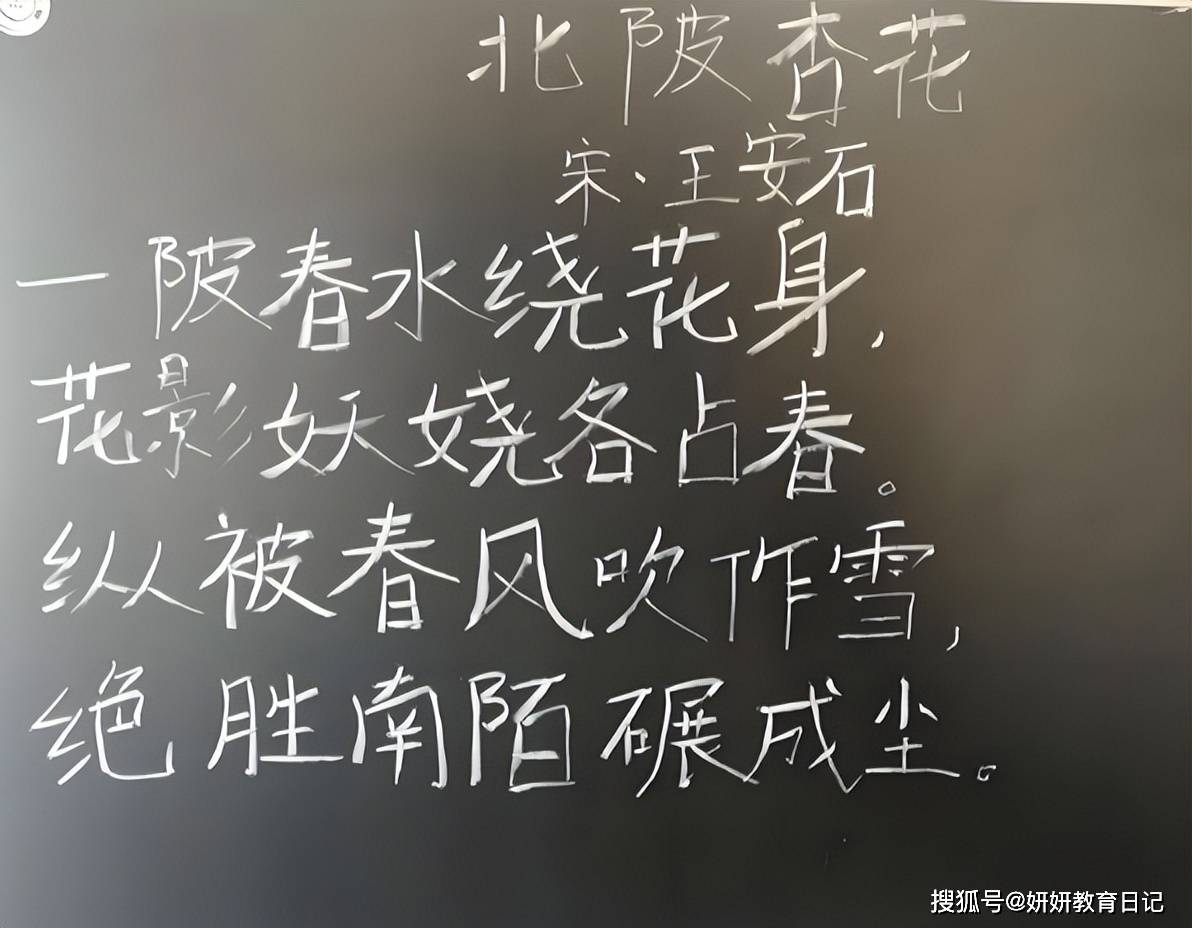 北陂杏花
宋·王安石
一陂春水绕花身,
花影妖娆各占春。
纵被春风吹作雪,
绝胜南陌碾成尘。
搜狐号@妍妍教育日记